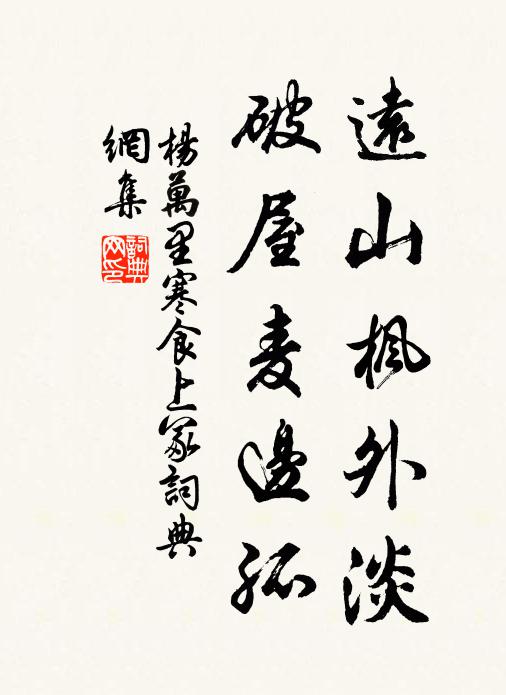 遠山楓外淡
破屋麦邊孤
楊萬里寒食上冢詞典
網集
詞典网印